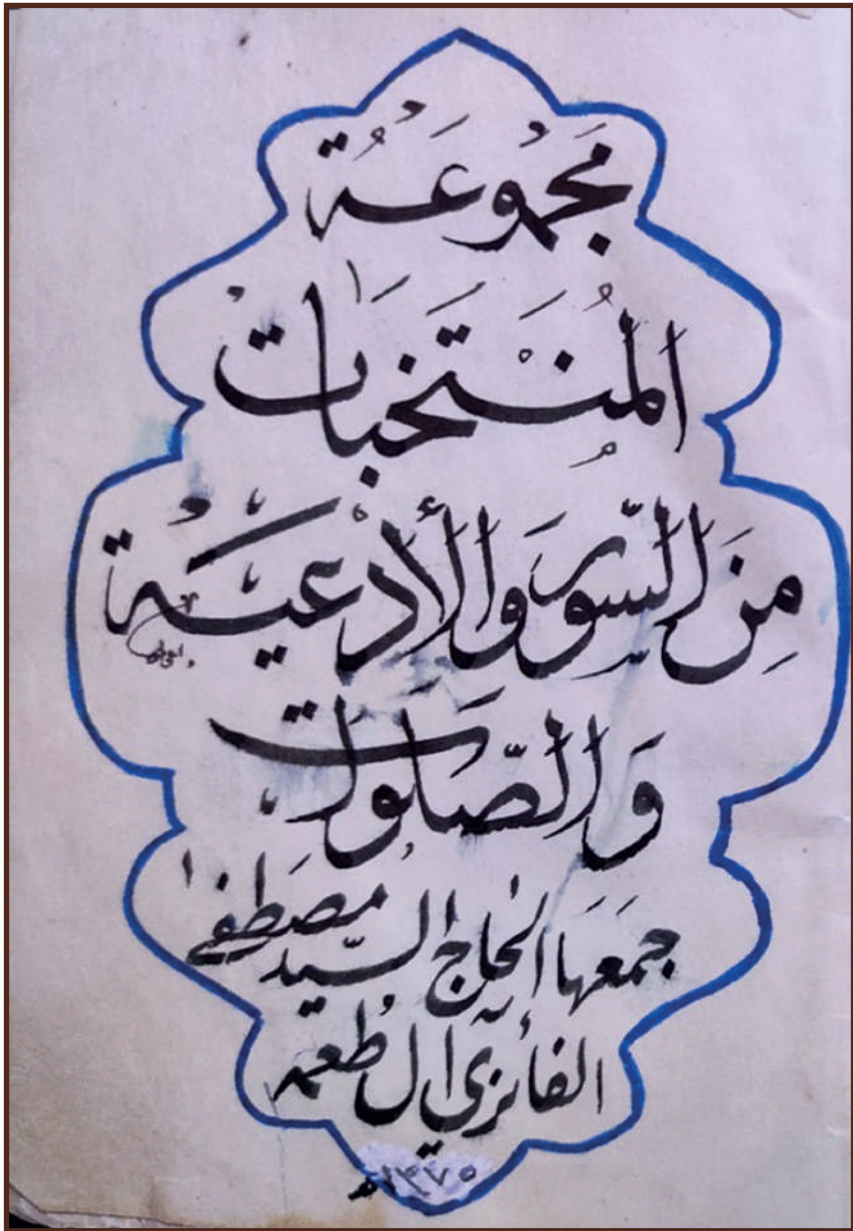 مَجْمُوعَةُ
المُنْتَخَبَاتْ
مِنَ السّوَرِ وَالأَدْعِيَةُ
وَالصَّلَوَاتْ
جَمَعَهَا الحَاج السّيد مصطفى
الفائزي آل طعمه
١٣٧٥هـ